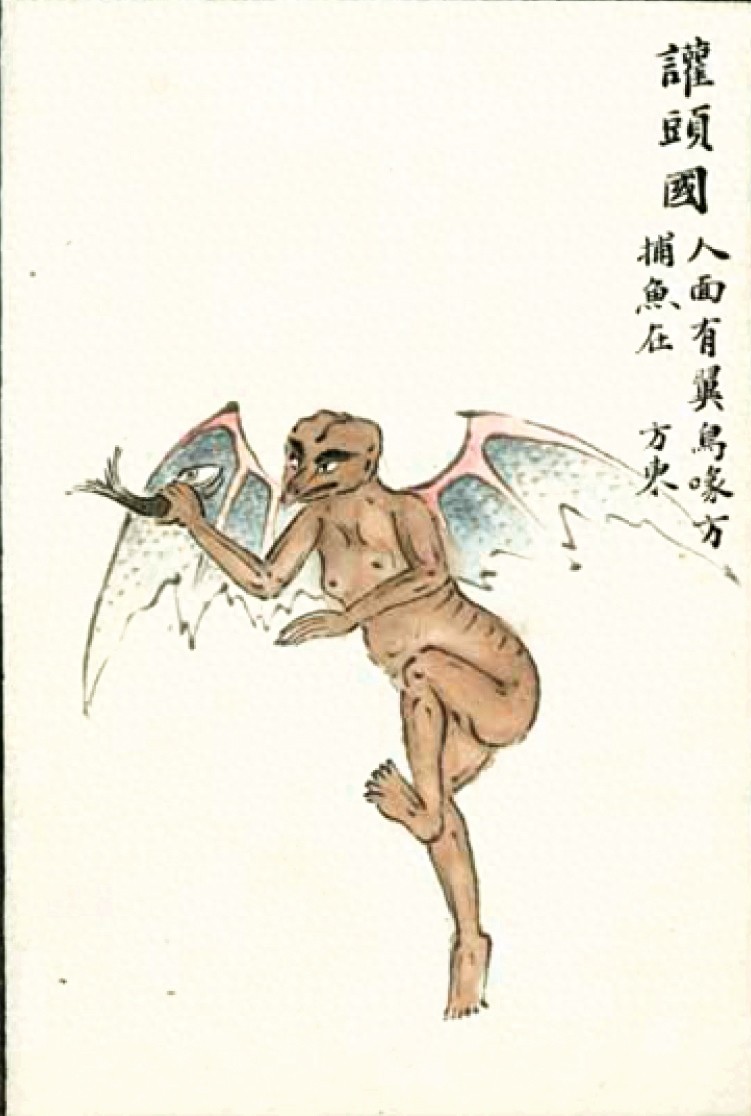 讙頭國
人面有翼鳥喙方
捕魚在 方東